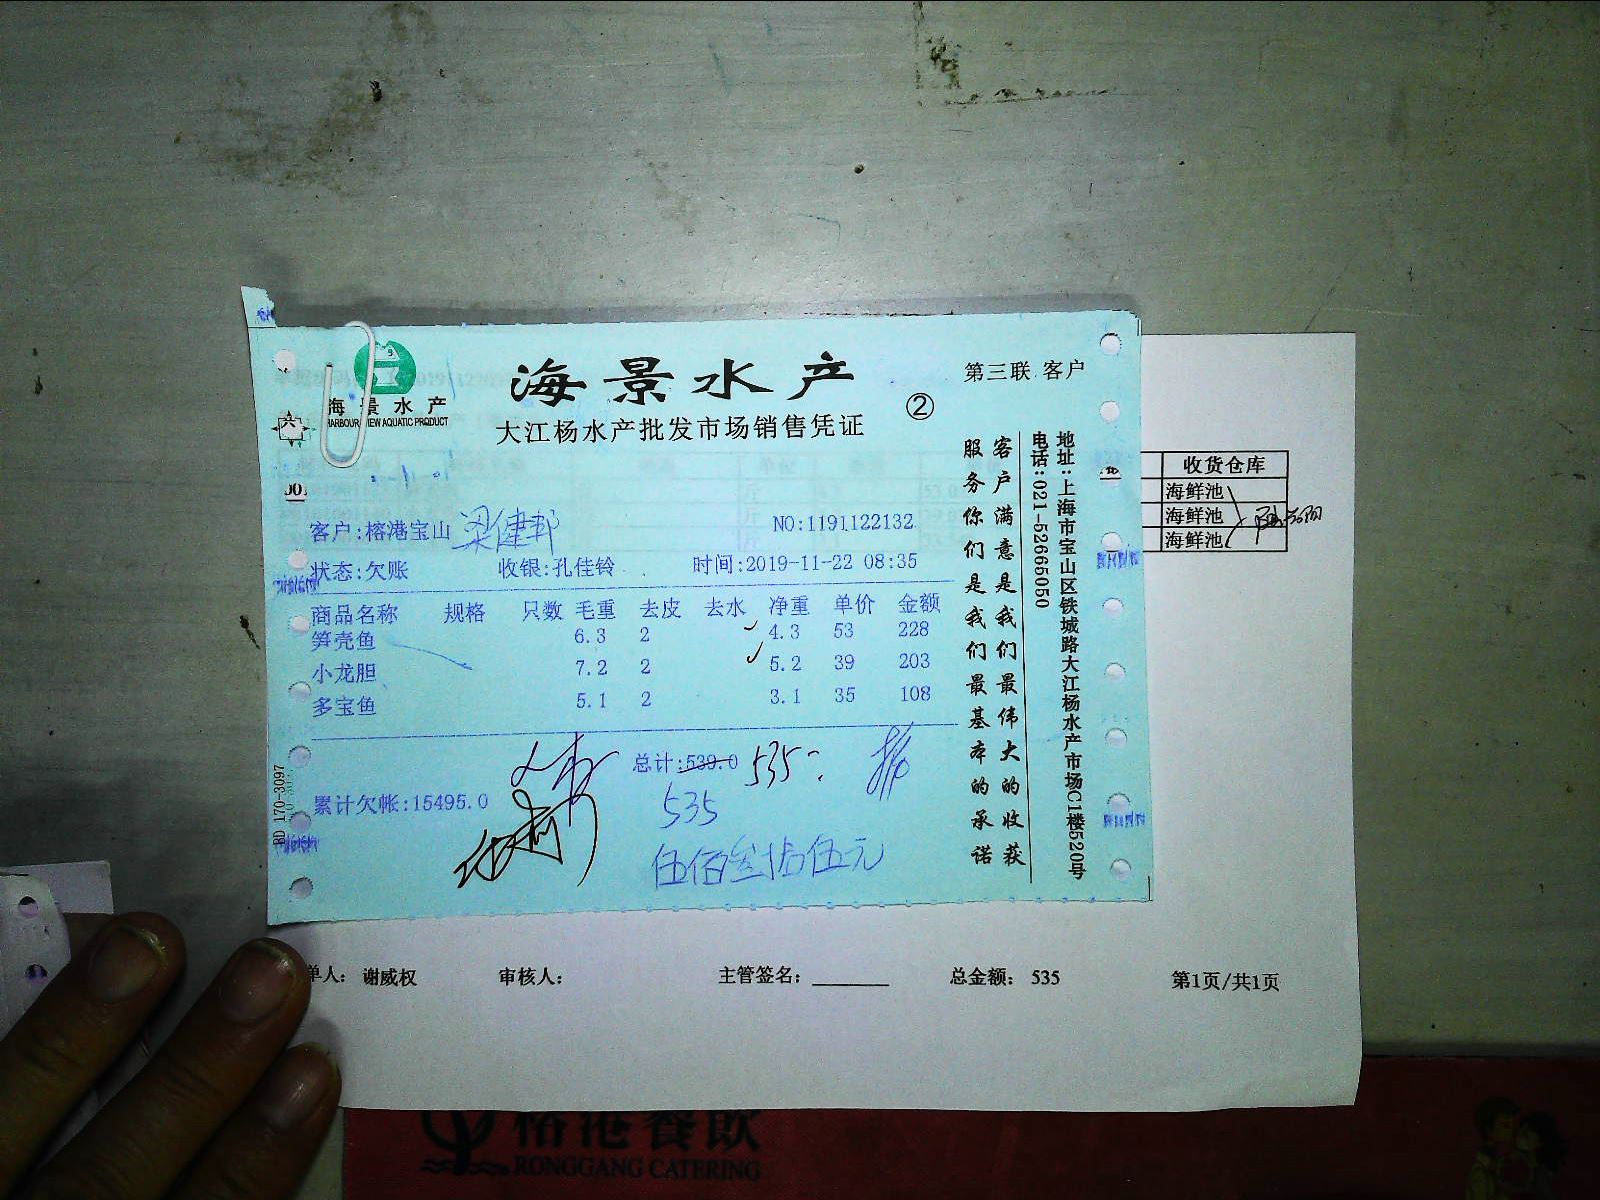 海景水产
第三联 客户
海景水产
HARBOUR VIEW AQUATIC PRODUCT
大江杨水产批发市场销售凭证
②
客户:榕港宝山 梁健邦
NO:1191122132
状态:欠账 收银:孔佳铃 时间:2019-11-22 08:35
商品名称 规格 只数 毛重 去皮 去水 净重 单价 金额
笋壳鱼 6.3 2 4.3 53 228
小龙胆 7.2 2 5.2 39 203
多宝鱼 5.1 2 3.1 35 108
总计:539.0 535
累计欠帐:15495.0
535
伍佰叁拾伍元
客户满意是我们最伟大的收获
服务你们是我们最基本的承诺
地址:上海市宝山区铁城路大江杨水产市场C1楼520号
电话:021-52665050
RD 170-3097
收货仓库
海鲜池
海鲜池
海鲜池
单人: 谢威权 审核人: 主管签名: 总金额: 535 第1页/共1页
榕港餐飲
RONGGANG CATERING